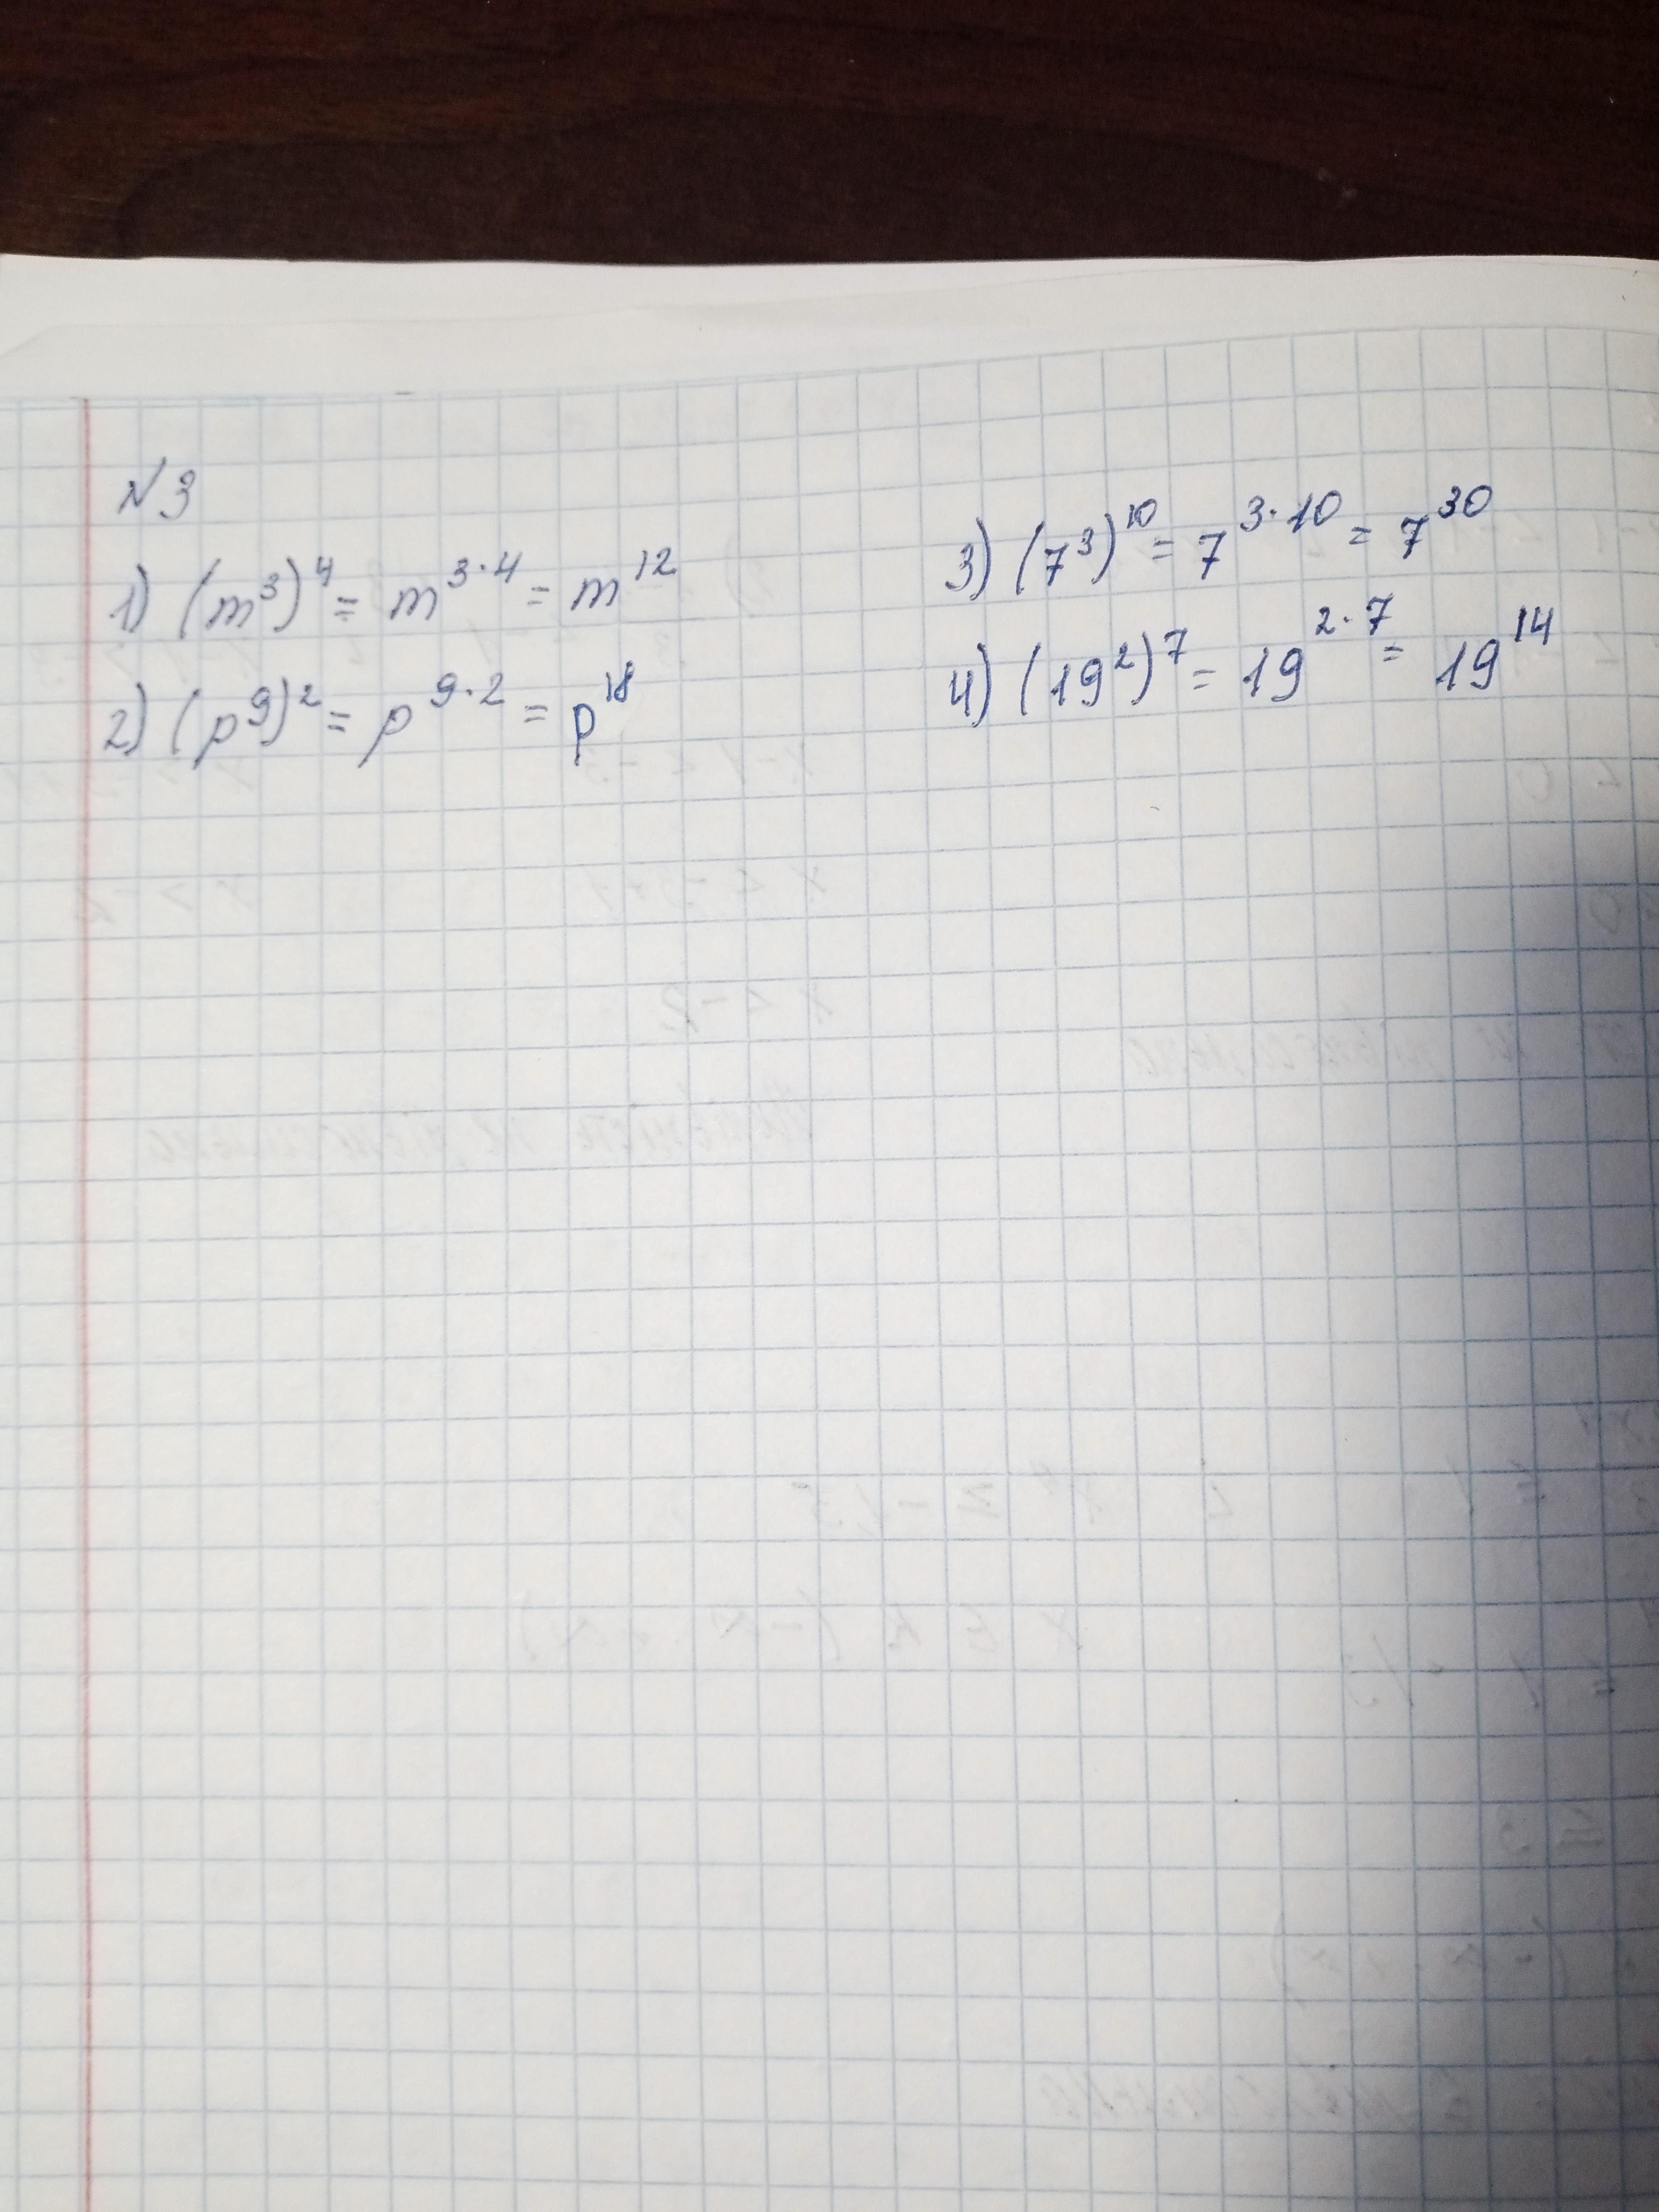 №3
1) (m³)⁴ = m³·⁴ = m¹²
2) (p⁹)² = p⁹·² = p¹⁸
3) (7³)¹⁰ = 7³·¹⁰ = 7³⁰
4) (19²)⁷ = 19²·⁷ = 19¹⁴